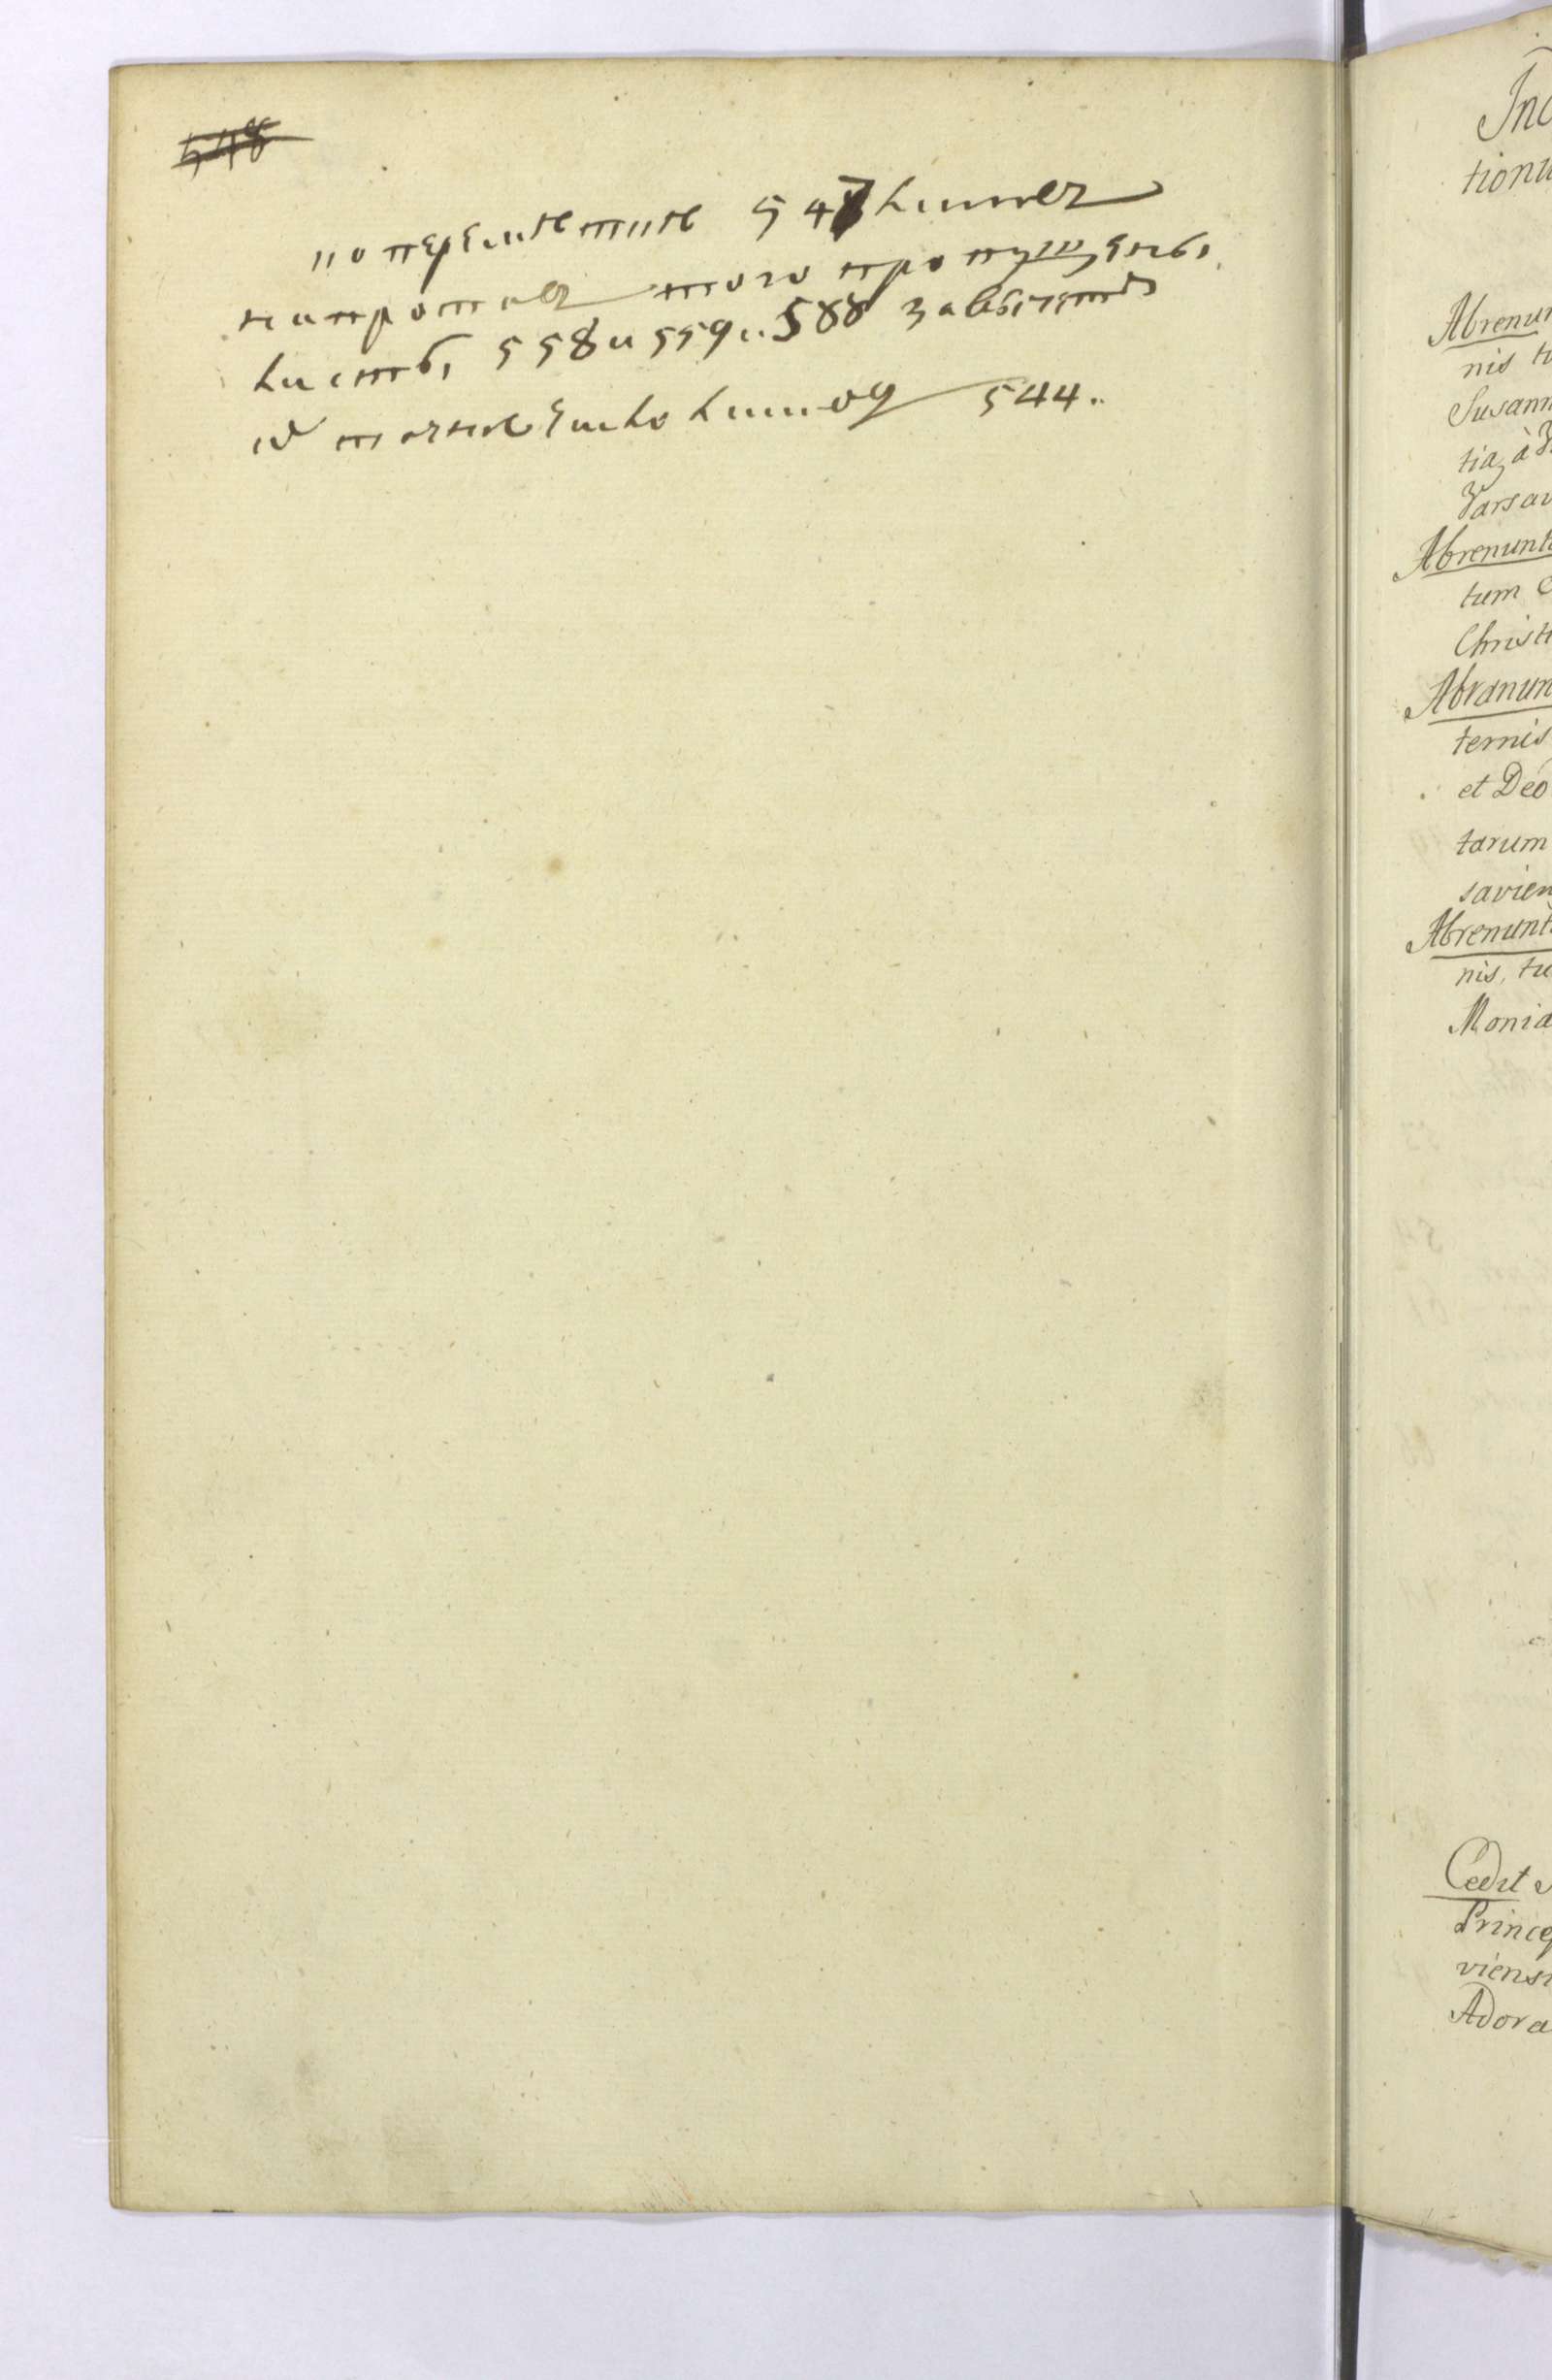 548
по переметке 547 листов
напротив того пропущены
листы 558 и 559 и 588 за вычетом
их точное число листов 544.
Inc
tionu
Abrenun
nis tu
Susann
tia, à V
Varsav
Abrenunt
tum C
Christi
Abranun
ternis
et Deo
tarum
savien
Abrenunt
nis, tu
Monia
Cedit
Princep
viensi
Adora